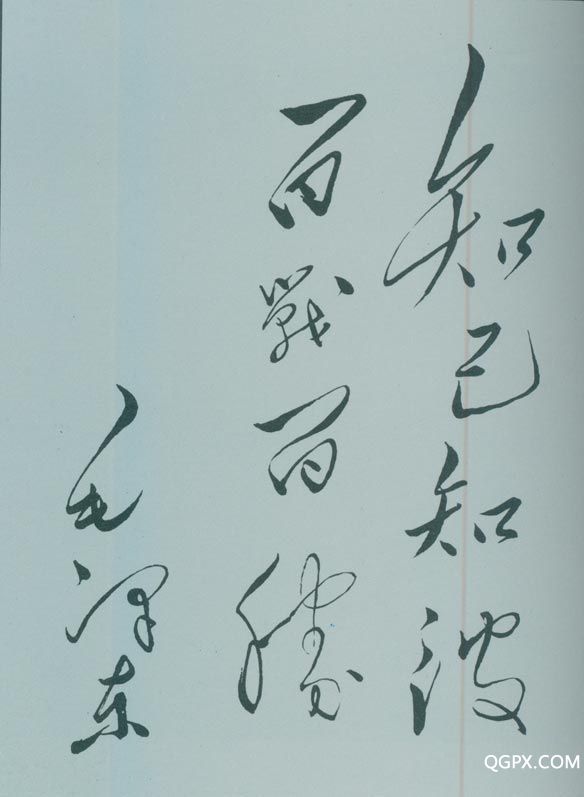 知己知彼
百戰百勝
毛泽东
QGPX.COM